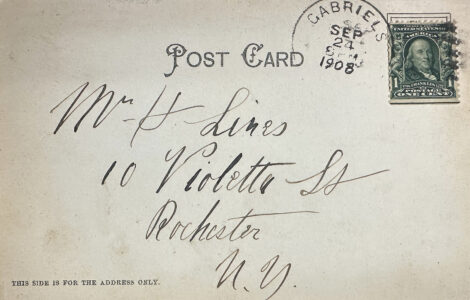 GABRIELS
SEP
24
1908
POST CARD
UNITED STATES OF AMERICA
FRANKLIN
POSTAGE
ONE CENT
Mr H Lines
10 Violetta St
Rochester
N.Y.
THIS SIDE IS FOR THE ADDRESS ONLY.